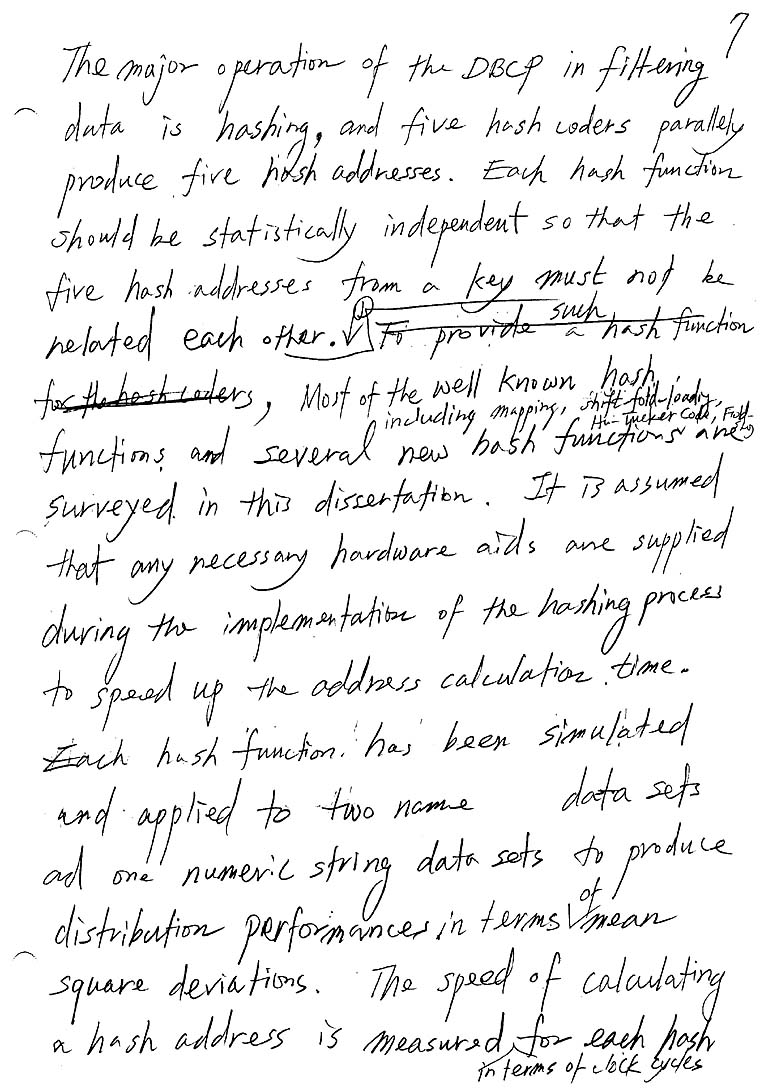 7
The major operation of the DBCP in filtering
data is hashing, and five hash coders parallely
produce five hash addresses. Each hash function
should be statistically independent so that the
five hash addresses from a key must not be
related each other. To provide such a hash function
for the hash coders, Most of the well known hash
including mapping, shift-fold-loading,
Hu-Tucker Code,
functions and several new hash functions are
surveyed in this dissertation. It is assumed
that any necessary hardware aids are supplied
during the implementation of the hashing process
to speed up the address calculation time.
Each hash function has been simulated
and applied to two name data sets
ad one numeric string data sets to produce
distribution performances in terms of mean
square deviations. The speed of calculating
a hash address is measured for each hash
in terms of clock cycles